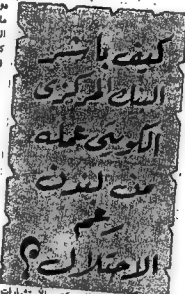 كيف باشر
البنك المركزي
الكويتي عمله
من لندن
رغم
الاحتلال؟